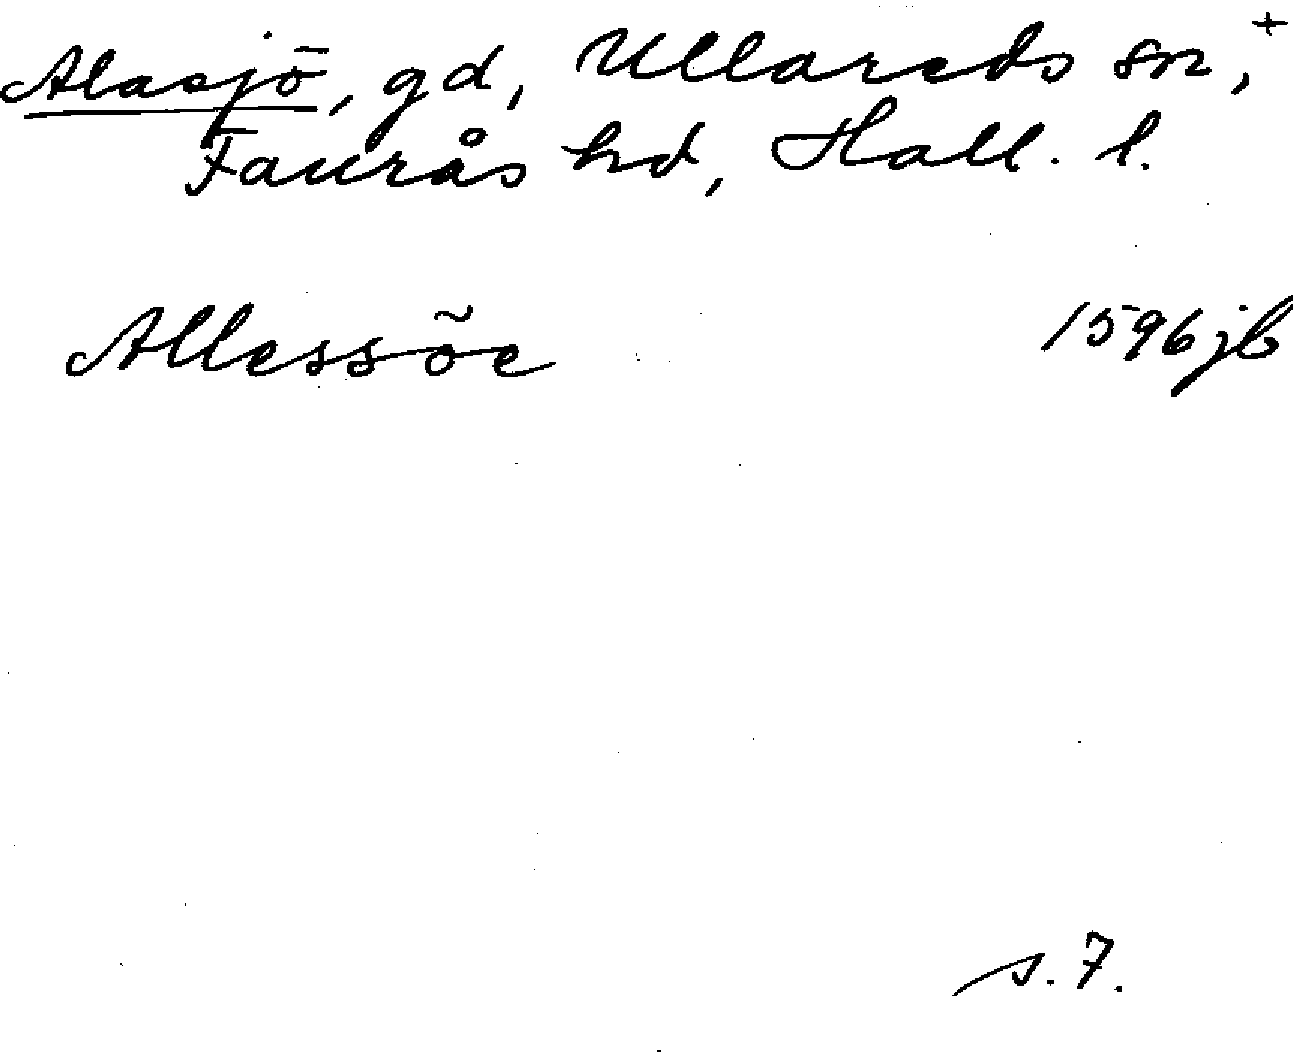 Alasjö, gd, Ullareds sn, +
Faurås hd, Hall. l.
Allessõe 1596 jb
s. 7.